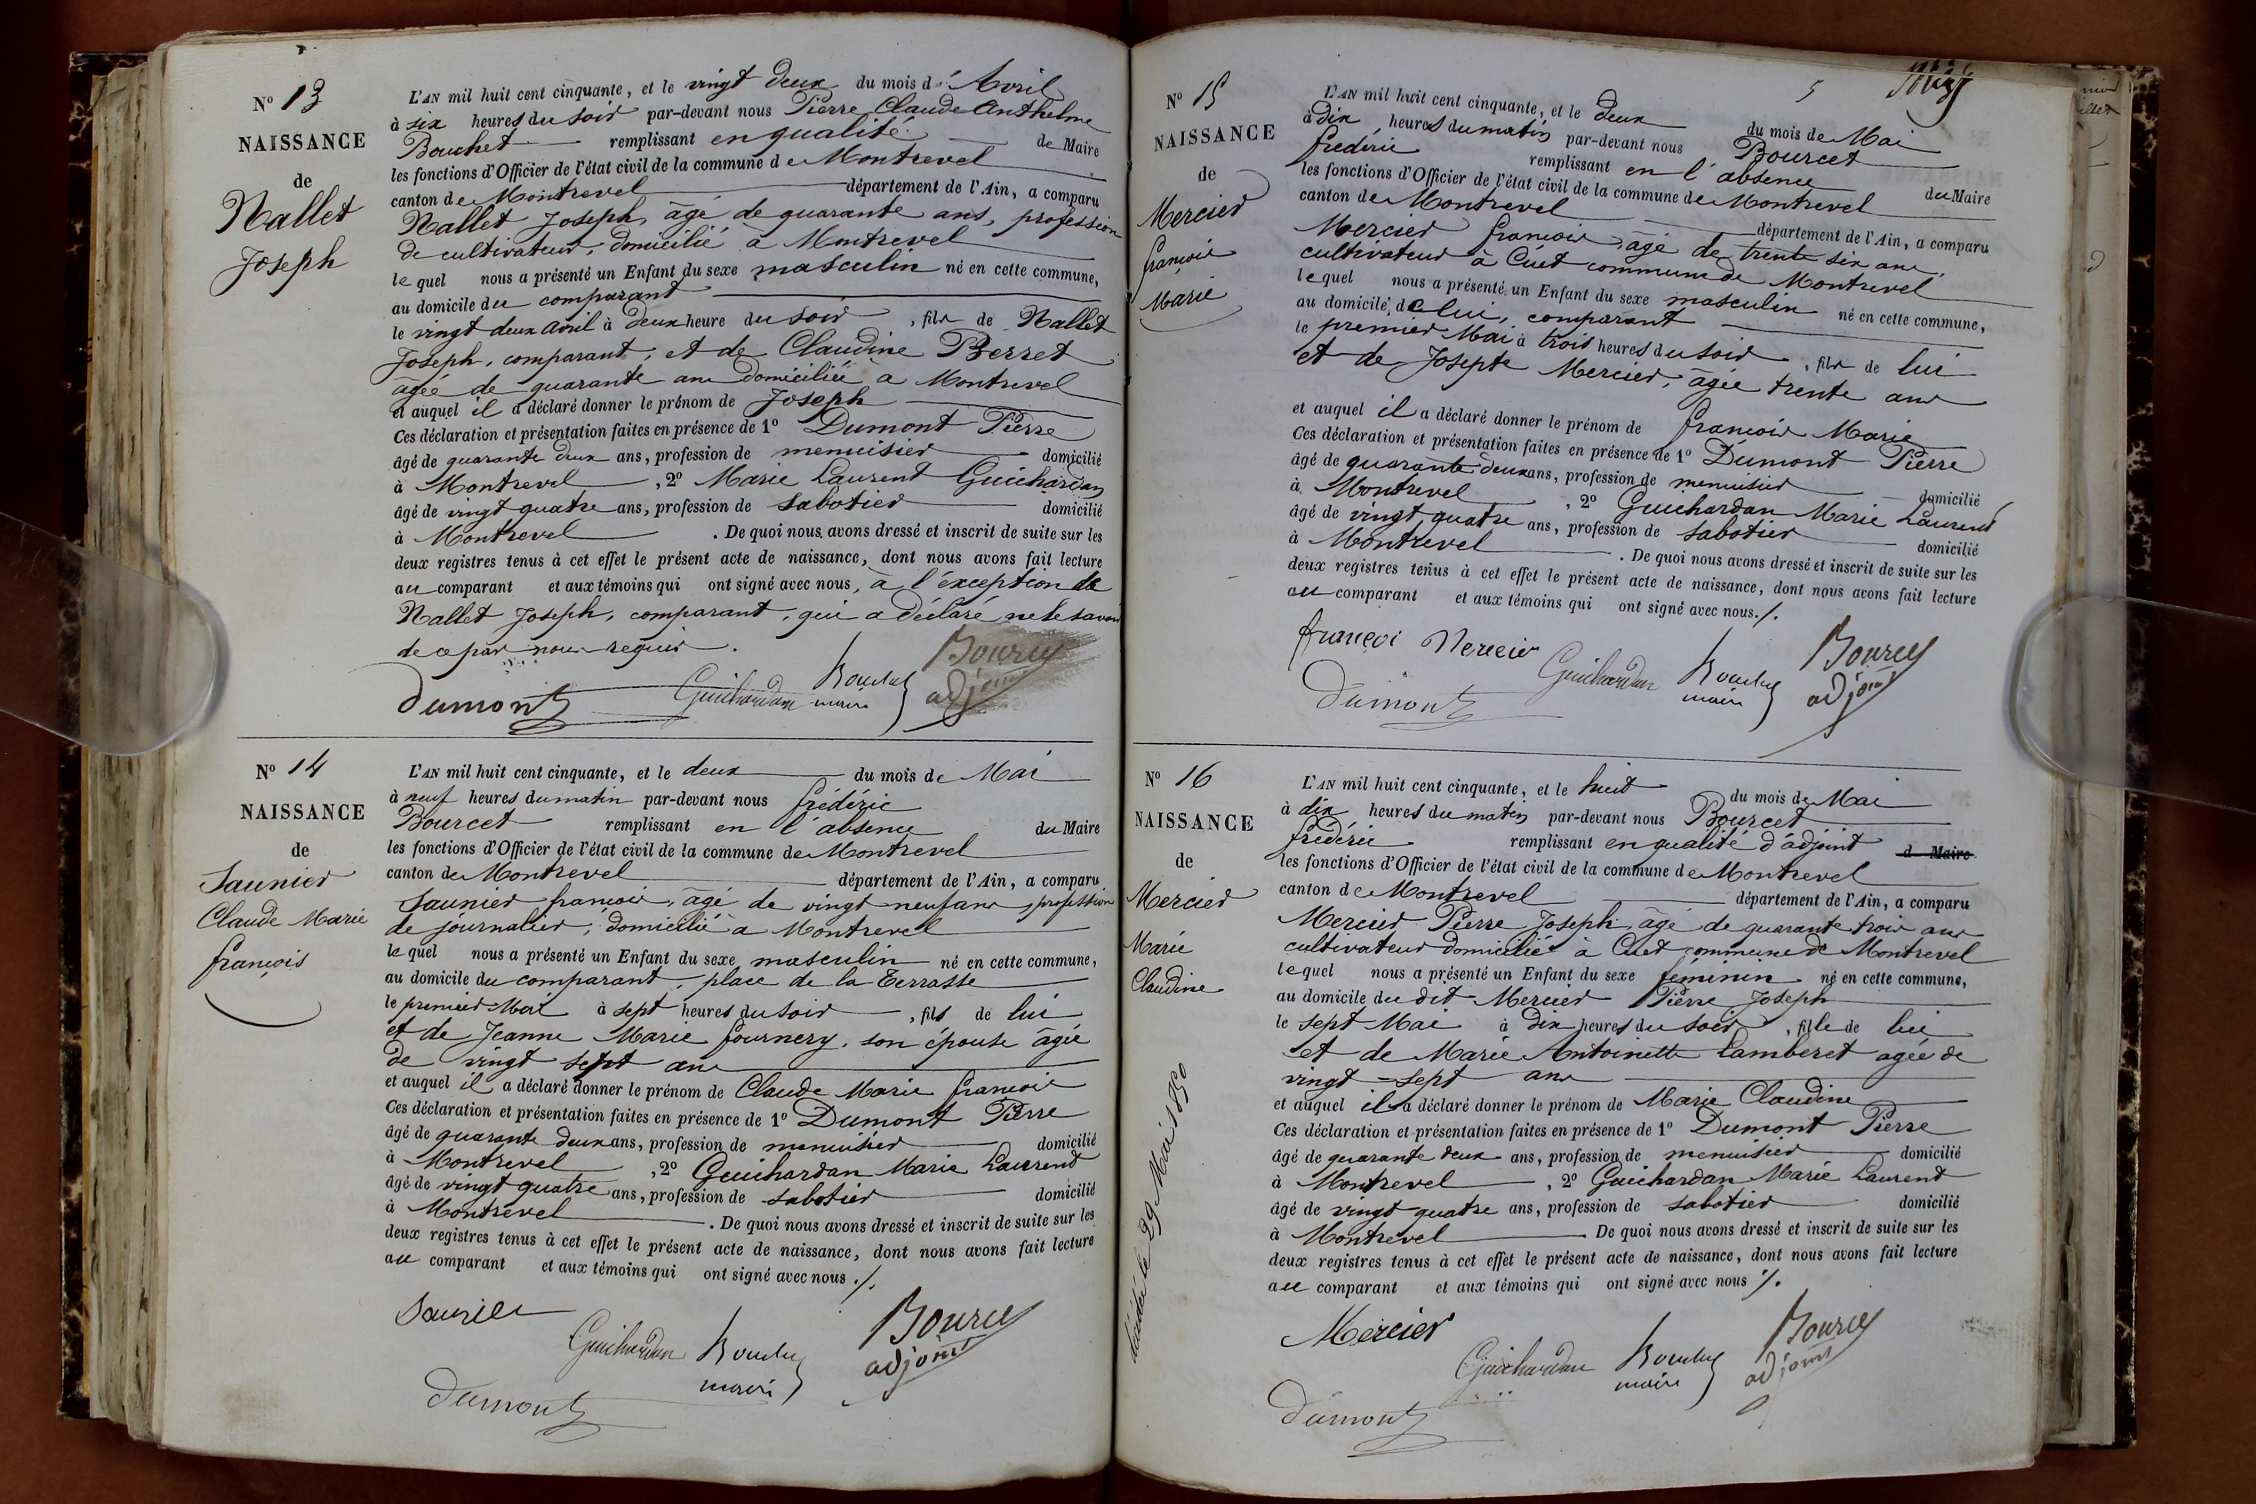 No 13
NAISSANCE
de
Nallet
Joseph
L'AN mil huit cent cinquante, et le vingt deux du mois d'Avril
à six heures du soir par-devant nous Pierre Claude Anthelme
Bouchet remplissant en qualité de Maire
les fonctions d'Officier de l'état civil de la commune de Montrevel
canton de Montrevel département de l'Ain, a comparu
Nallet Joseph, âgé de quarante ans, profession
de cultivateur, domicilié à Montrevel
lequel nous a présenté un Enfant du sexe masculin né en cette commune,
au domicile du comparant
le vingt deux avril à deux heure du soir, fils de Nallet
Joseph, comparant, et de Claudine Berret
agée de quarante ans domiciliée a Montrevel
et auquel il a déclaré donner le prénom de Joseph
Ces déclaration et présentation faites en présence de 1o Dumont Pierre
âgé de quarante deux ans, profession de menuisier domicilié
à Montrevel, 2o Marie Laurent Guichardan
âgé de vingt quatre ans, profession de sabotier domicilié
à Montrevel. De quoi nous avons dressé et inscrit de suite sur les
deux registres tenus à cet effet le présent acte de naissance, dont nous avons fait lecture
au comparant et aux témoins qui ont signé avec nous, à l'éxception de
Nallet Joseph, comparant, qui a déclaré ne le savoir
de ce par nous requis.
Dumont Guichardan Bouchet maire Bourcet adjoint
No 14
NAISSANCE
de
Saunier
Claude Marie
françois
L'AN mil huit cent cinquante, et le deux du mois de Mai
à neuf heures du matin par-devant nous frédéric
Bourcet remplissant en l'absence du Maire
les fonctions d'Officier de l'état civil de la commune de Montrevel
canton de Montrevel département de l'Ain, a comparu
Saunier francois, âgé de vingt neuf ans, profession
de journalier, domicilié à Montrevel
lequel nous a présenté un Enfant du sexe masculin né en cette commune,
au domicile du comparant, place de la Terrasse
le premier Mai à sept heures du soir, fils de lui
et de Jeanne Marie fournery, son épouse âgée
de vingt sept ans
et auquel il a déclaré donner le prénom de Claude Marie francois
Ces déclaration et présentation faites en présence de 1o Dumont Pierre
âgé de quarante deux ans, profession de menuisier domicilié
à Montrevel, 2o Guichardan Marie Laurent
âgé de vingt quatre ans, profession de sabotier domicilié
à Montrevel. De quoi nous avons dressé et inscrit de suite sur les
deux registres tenus à cet effet le présent acte de naissance, dont nous avons fait lecture
au comparant et aux témoins qui ont signé avec nous ./.
Saunier
Guichardan Bouchet maire Bourcet adjoint
Dumont
5
No 15
NAISSANCE
de
Mercier
françois
Marie
L'AN mil huit cent cinquante, et le deux du mois de Mai
à dix heures du matin par-devant nous Bourcet
frédéric remplissant en l'absence du Maire
les fonctions d'Officier de l'état civil de la commune de Montrevel
canton de Montrevel département de l'Ain, a comparu
Mercier francois, âgé de trente six ans,
cultivateur à Cuet commune de Montrevel
lequel nous a présenté un Enfant du sexe masculin né en cette commune,
au domicile de lui, comparant
le premier Mai à trois heures du soir, fils de lui
et de Josepte Mercier, âgée trente ans
et auquel il a déclaré donner le prénom de francois Marie
Ces déclaration et présentation faites en présence de 1o Dumont Pierre
âgé de quarante deux ans, profession de menuisier domicilié
à Montrevel, 2o Guichardan Marie Laurent
âgé de vingt quatre ans, profession de sabotier domicilié
à Montrevel. De quoi nous avons dressé et inscrit de suite sur les
deux registres tenus à cet effet le présent acte de naissance, dont nous avons fait lecture
au comparant et aux témoins qui ont signé avec nous./.
françoi Mercier
Guichardan Bouchet maire Bourcet adjoint
Dumont
No 16
NAISSANCE
de
Mercier
Marie
Claudine
décédée le 29 Mai 1850
L'AN mil huit cent cinquante, et le huit du mois de Mai
à dix heures du matin par-devant nous Bourcet
frédéric remplissant en qualité d'adjoint d Maire
les fonctions d'Officier de l'état civil de la commune de Montrevel
canton de Montrevel département de l'Ain, a comparu
Mercier Pierre Joseph, âgé de quarante trois ans
cultivateur domicilié à Cuet commune de Montrevel
lequel nous a présenté un Enfant du sexe féminin né en cette commune,
au domicile du dit Mercier Pierre Joseph
le sept Mai à dix heures du soir, fille de lui
et de Marie Antoinette Lamberet agée de
vingt-sept ans
et auquel il a déclaré donner le prénom de Marie Claudine
Ces déclaration et présentation faites en présence de 1o Dumont Pierre
âgé de quarante deux ans, profession de menuisier domicilié
à Montrevel, 2o Guichardan Marie Laurent
âgé de vingt quatre ans, profession de sabotier domicilié
à Montrevel. De quoi nous avons dressé et inscrit de suite sur les
deux registres tenus à cet effet le présent acte de naissance, dont nous avons fait lecture
au comparant et aux témoins qui ont signé avec nous ./.
Mercier
Guichardan Bouchet maire Bourcet adjoint
Dumont